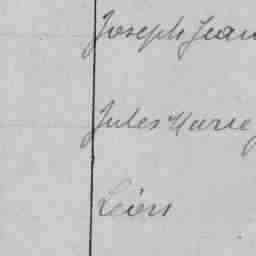 Joseph Jean
Jules Marie
Léon